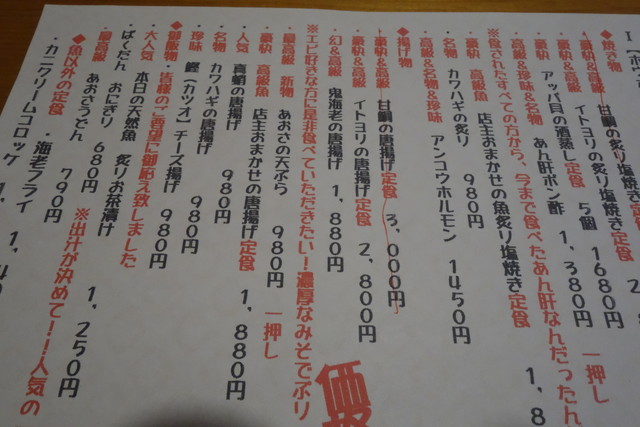 ◆焼き物
豪快&高級 甘鯛の炙り塩焼き定食
豪快&高級 イトヨリの炙り塩焼き定食
豪快 アッパ貝の酒蒸し定食 5個 1680円 一押し
高級&珍味&名物 あん肝ポン酢 1,380円
※食されたすべての方から、今まで食べたあん肝なんだったん
豪快 高級魚 店主おまかせの魚炙り塩焼き定食 1,8
名物 カワハギの炙り 980円
高級&名物&珍味 アンコウホルモン 1450円
◆揚げ物
豪快&高級 甘鯛の唐揚げ定食 3,000円
豪快&高級 イトヨリの唐揚げ定食 2,800円
幻&高級 鬼海老の唐揚げ 1,880円
※エビ好きな方に是非食べていただきたい!濃厚なみそでぷり
最高級 新物 あおさの天ぷら 980円 一押し
豪快 高級魚 店主おまかせの唐揚げ定食 1,880円
人気 真蛸の唐揚げ 980円
名物 カワハギの唐揚げ 980円
珍味 鰹(カツオ)チーズ揚げ 980円
◆御飯物 皆様のご要望に御応え致しました
大人気 本日の天然魚 炙りお茶漬け 1,250円
・ばくだん おにぎり 680円
・最高級 あおさうどん 790円 ※出汁が決めて!!人気の
◆魚以外の定食
・カニクリームコロッケ ・海老フライ
価